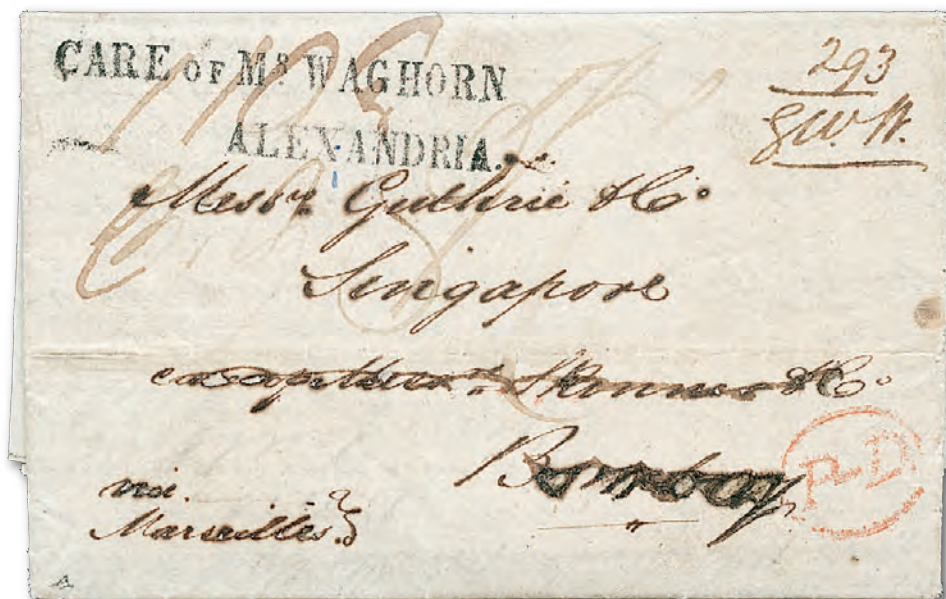 CARE OF Mr WAGHORN
ALEXANDRIA.
293
G.W.W.
Messrs Guthrie & Co
Singapore
Skinner & Co
Bombay
via
Marseilles
P.D